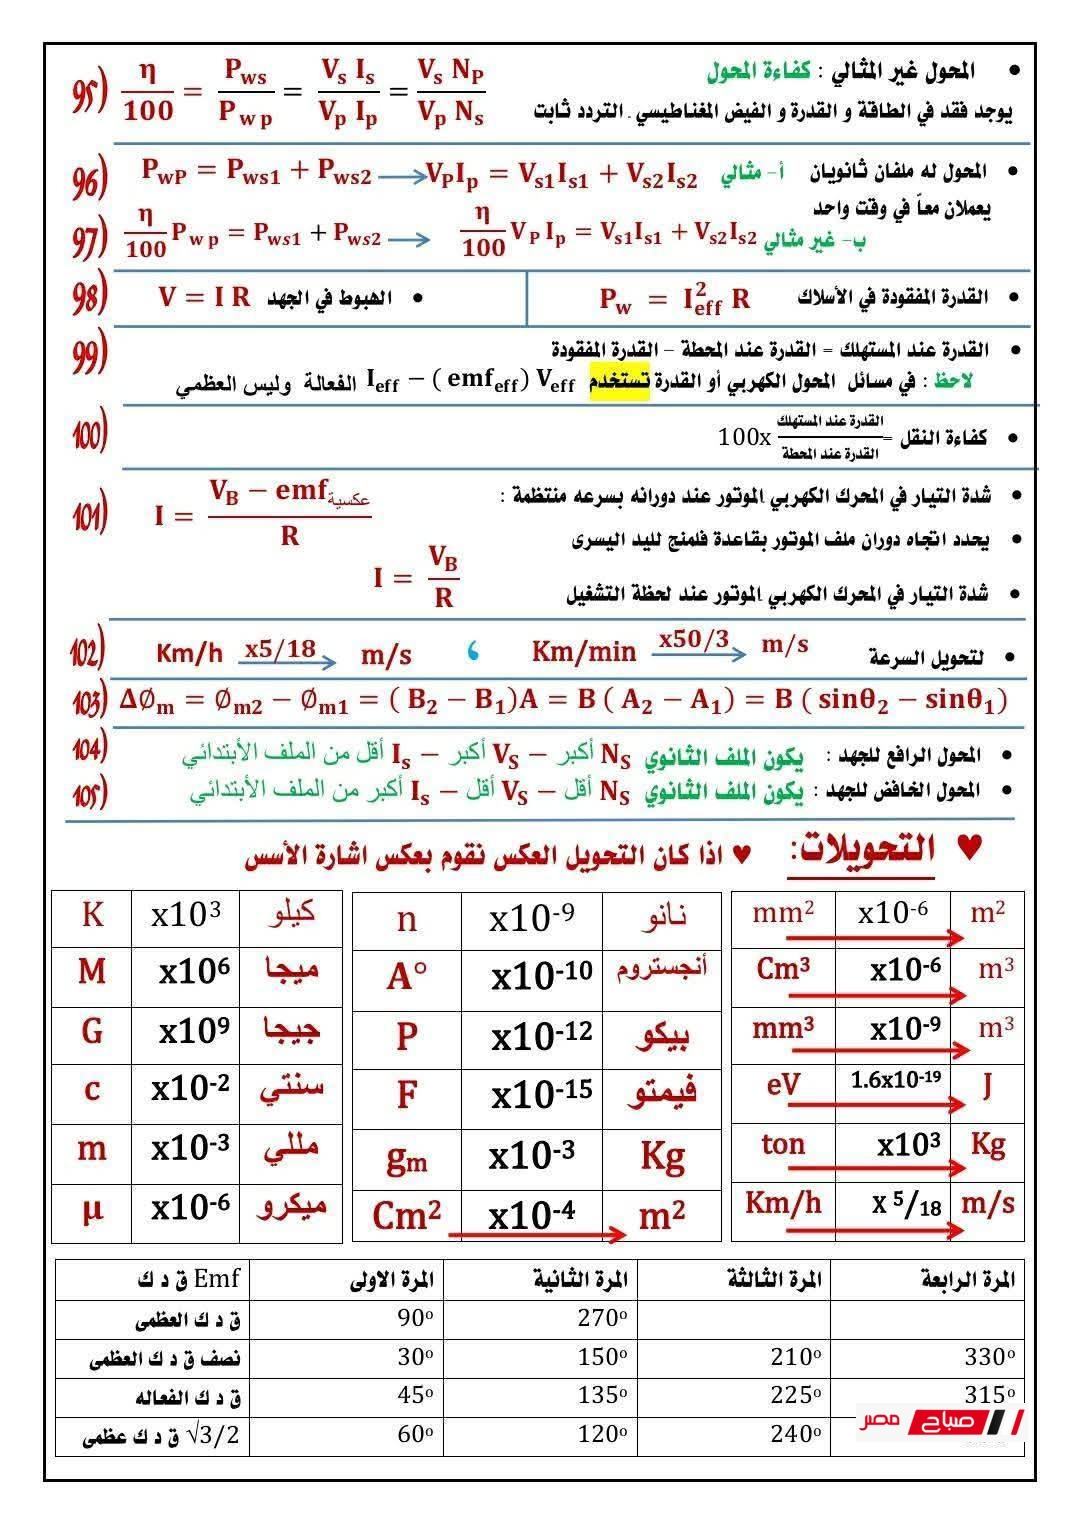 95) η/100 = Pws/Pwp = Vs Is/Vp Ip = Vs NP/Vp Ns
• المحول غير المثالي : كفاءة المحول
يوجد فقد في الطاقة و القدرة و الفيض المغناطيسي . التردد ثابت
96) PwP = Pws1 + Pws2 → VPIp = Vs1Is1 + Vs2Is2
• المحول له ملفان ثانويان أ- مثالي
يعملان معاً في وقت واحد
97) η/100 Pwp = Pws1 + Pws2 → η/100 VP Ip = Vs1Is1 + Vs2Is2 ب- غير مثالي
98) • القدرة المفقودة في الأسلاك Pw = I²eff R
• الهبوط في الجهد V = I R
99) • القدرة عند المستهلك = القدرة عند المحطة – القدرة المفقودة
لاحظ : في مسائل المحول الكهربي أو القدرة تستخدم Ieff – ( emfeff) Veff الفعالة وليس العظمي
100) • كفاءة النقل = القدرة عند المستهلك/القدرة عند المحطة 100x
101) • شدة التيار في المحرك الكهربي الموتور عند دورانه بسرعه منتظمة : I = VB − emfعكسية/R
• يحدد اتجاه دوران ملف الموتور بقاعدة فلمنج لليد اليسرى
• شدة التيار في المحرك الكهربي الموتور عند لحظة التشغيل I = VB/R
102) • لتحويل السرعة Km/h x5/18 → m/s ، Km/min x50/3 → m/s
103) ΔØm = Øm2 − Øm1 = ( B2 − B1)A = B ( A2 − A1) = B ( sinθ2 − sinθ1)
104) • المحول الرافع للجهد : يكون الملف الثانوي NS أكبر – VS أكبر – Is أقل من الملف الأبتدائي
105) • المحول الخافض للجهد : يكون الملف الثانوي NS أقل – VS أقل – Is أكبر من الملف الأبتدائي
♥ التحويلات: ♥ اذا كان التحويل العكس نقوم بعكس اشارة الأسس
K x10³ كيلو
M x10⁶ ميجا
G x10⁹ جيجا
c x10⁻² سنتي
m x10⁻³ مللي
μ x10⁻⁶ ميكرو
n x10⁻⁹ نانو
A° x10⁻¹⁰ أنجستروم
P x10⁻¹² بيكو
F x10⁻¹⁵ فيمتو
gm x10⁻³ Kg
Cm² x10⁻⁴ m²
mm² x10⁻⁶ m²
Cm³ x10⁻⁶ m³
mm³ x10⁻⁹ m³
eV 1.6x10⁻¹⁹ J
ton x10³ Kg
Km/h x 5/18 m/s
Emf ق د ك المرة الاولى المرة الثانية المرة الثالثة المرة الرابعة
ق د ك العظمى 90º 270º
نصف ق د ك العظمى 30º 150º 210º 330º
ق د ك الفعاله 45º 135º 225º 315º
√3/2 ق د ك عظمى 60º 120º 240º
صباح مصر